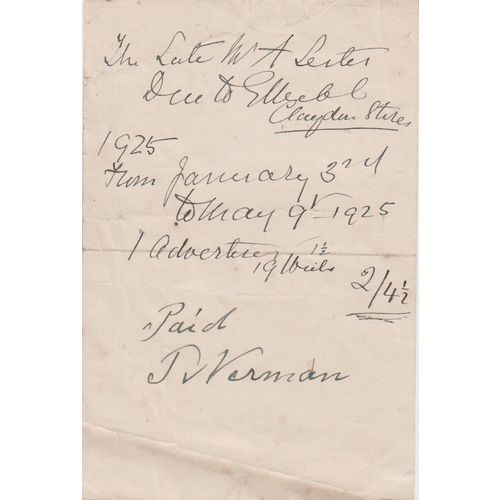 The Late Mr A Lester
Due to E Webb
Claydon Stores
1925
From January 3rd
to May 9th 1925
1 Advertiser 1½
19 Weeks
2/4½
Paid
Norman